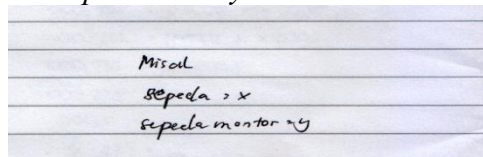 Misal
sepeda = x
sepeda montor = y